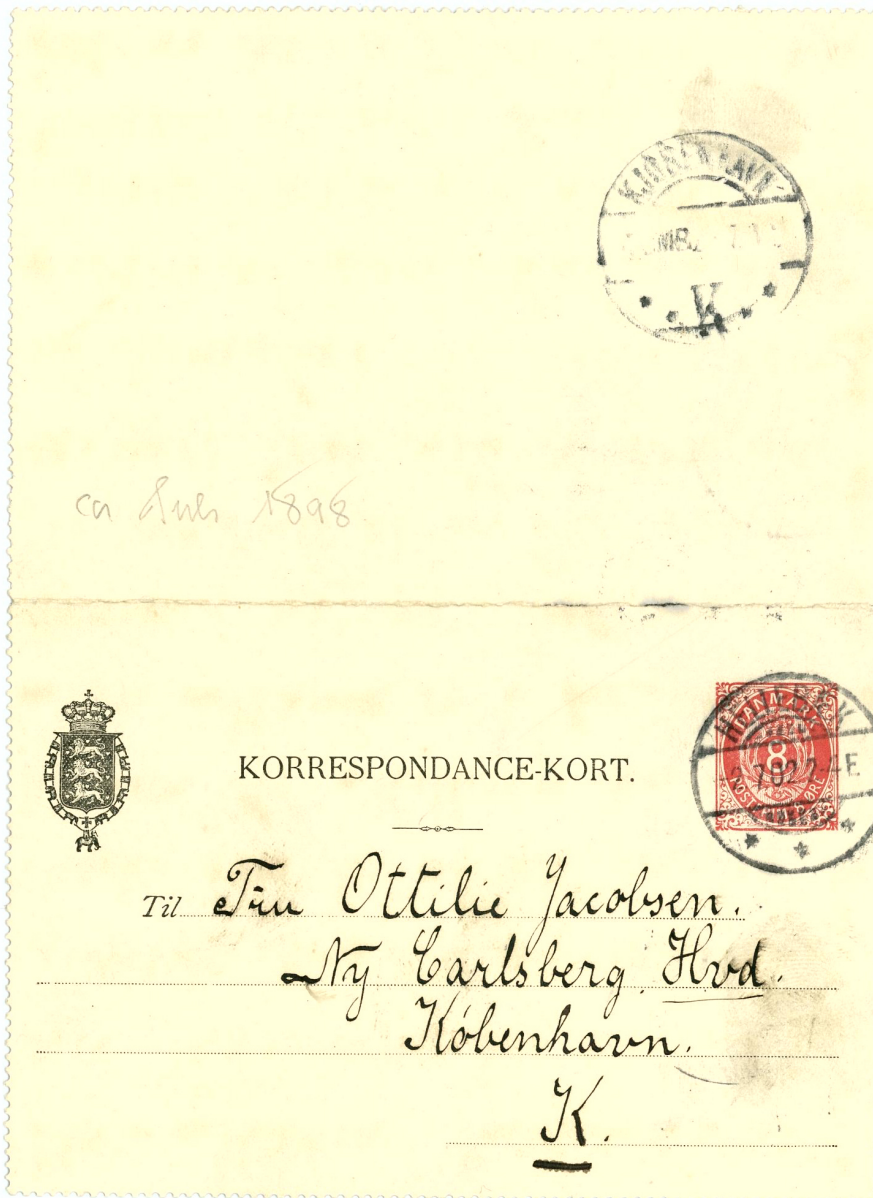 KJØBENHAVN
K
ca 1898
KORRESPONDANCE-KORT.
DANMARK
8
POST
ØRE
7.02.7.4E
Til Fru Ottilie Jacobsen.
Ny Carlsberg Hvd.
København.
K.